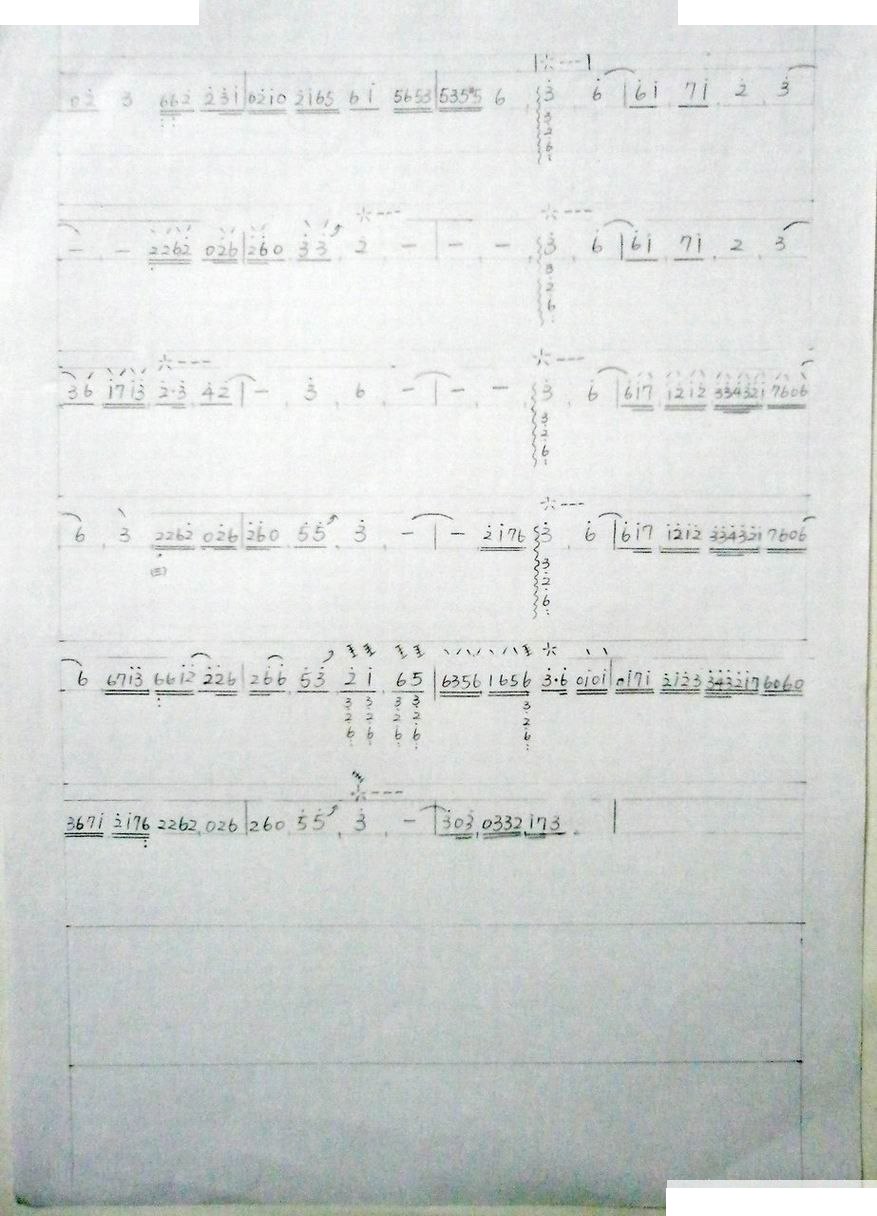 02̇ 3 662̇ 2̇3̇1̇ | 02̇1̇0 2̇1̇65 61̇ 5653 | 535 5 6 3̇ 6̇ | 6̇1̇ 71̇ 2̇ 3̇
- - 2262̇ 026̇ | 2̇6̇0 3̇3̇ 2̇ - | - - 3̇ 6̇ | 6̇1̇ 71̇ 2 3̇
36̇ 1̇71̇3̇ 2̇·3̇ 4̇2̇ | - 3̇ 6 - | - - 3̇ 6̇ | 61̇7̇ 1̇2̇1̇2̇ 334321 7606̇
6̇ 3̇ 2262̇ 026̇ | 2̇6̇0 5̇5̇ 3̇ - | - 2̇1̇76 3̇ 6̇ | 6̇1̇7̇ 1̇2̇1̇2̇ 3̇3̇4̇3̇2̇1̇ 7606̇
6̇ 671̇3̇ 661̇2̇ 2̇26 | 26̇6̇ 5̇3̇ 2̇ 1̇ 6 5 | 6356 1656 3̇·6̇ 01̇01̇ | 1̇71̇ 2̇1̇2̇3 3̇4̇3̇2̇1̇7 6060
3671̇ 2̇1̇76 2262 026 | 260 5̇5̇ 3̇ - | 3̇03̇ 0332 1̇73